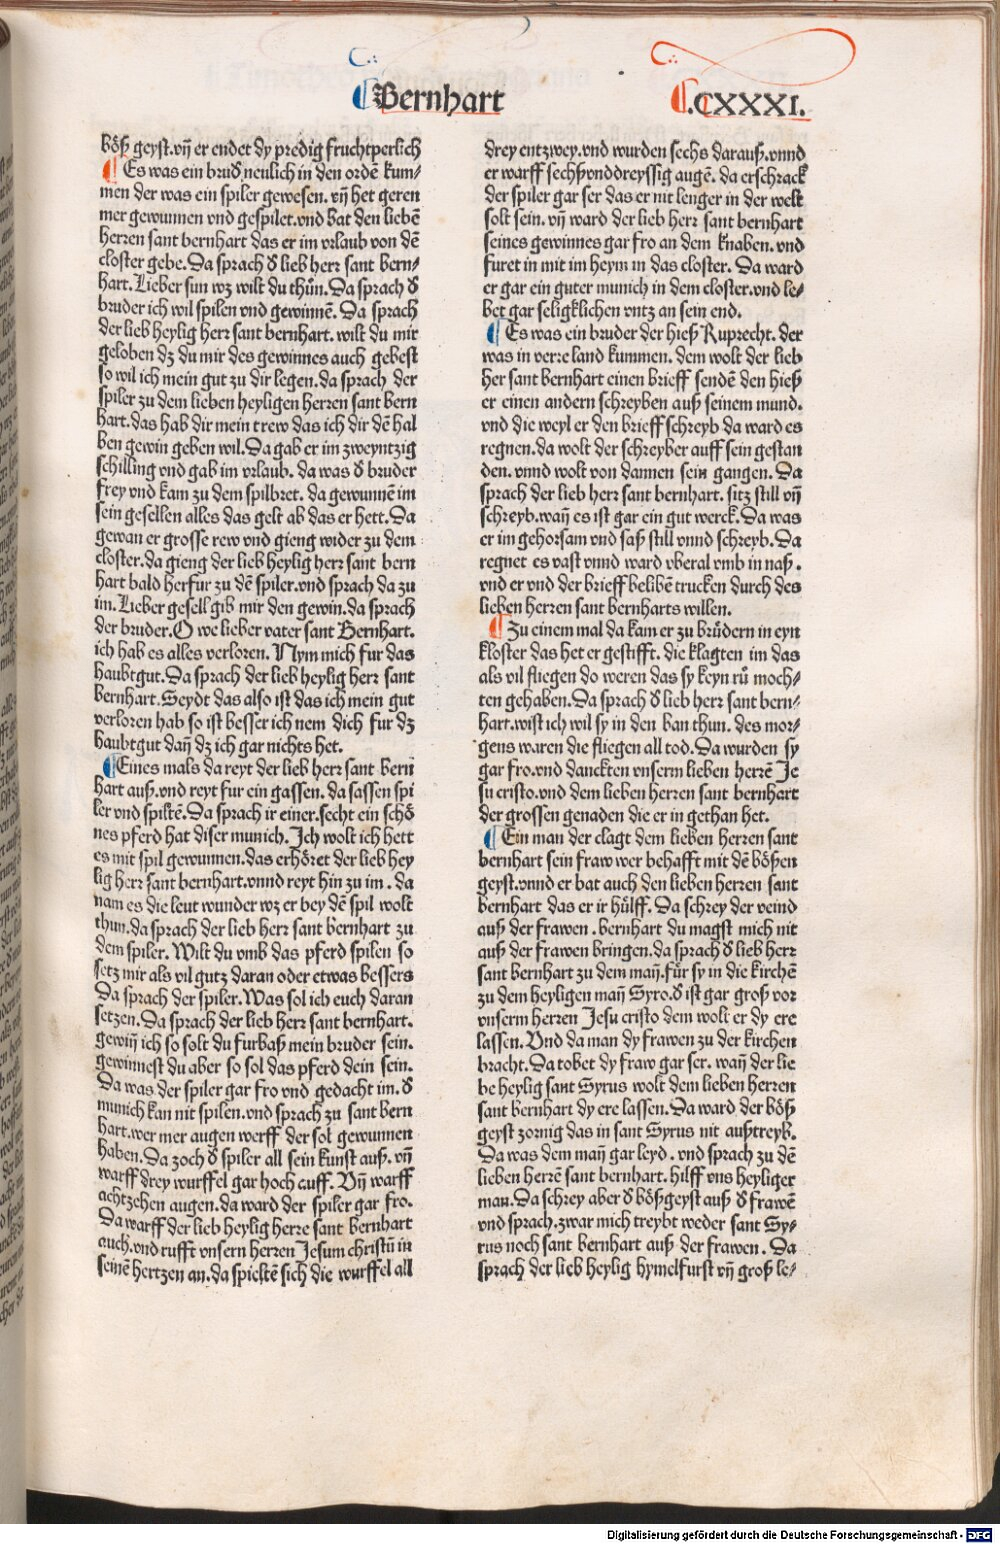 Bernhart
.CXXXI.
böß geyst. vñ er endet dy predig fruchtperlich
Es was ein brud̕ neulich in den ordē kum⸗
men der was ein spiler gewesen. vñ het geren
mer gewunnen vnd gespilet. vnd bat den liebē
herren sant bernhart das er im vrlaub von dē
closter gebe. Da sprach d̕ lieb herr sant bern⸗
hart. Lieber sun wz wilt du thůn. Da sprach d̕
bruder ich wil spilen vnd gewinnē. Da sprach
der lieb heylig herr sant bernhart. wilt du mir
geloben dz du mir des gewinnes auch gebest
so wil ich mein gut zu dir legen. da sprach der
spiler zu dem lieben heyligen herren sant bern
hart. das hab dir mein trew das ich dir dē hal
ben gewin geben wil. Da gab er im zweyntzig
schilling vnd gab im vrlaub. da was d̕ bruder
frey vnd kam zu dem spilbret. da gewunnē im
sein gesellen alles das gelt ab das er hett. Da
gewan er grosse rew vnd gieng wider zu dem
closter. da gieng der lieb heylig herr sant bern
hart bald herfur zu dē spiler. vnd sprach da zu
im. Lieber gesell gib mir den gewin. da sprach
der bruder. O we lieber vater sant Bernhart.
ich hab es alles verloren. Nym mich fur das
haubtgut. Da sprach der lieb heylig herr sant
bernhart. Seydt das also ist das ich mein gut
verloren hab so ist besser ich nem dich fur dz
haubtgut dañ dz ich gar nichts het.
Eines mals da reyt der lieb herr sant bern
hart auß. vnd reyt fur ein gassen. da sassen spi
ler vnd spiltē. Da sprach ir einer. secht ein schö
nes pferd hat diser munich. Ich wolt ich hett
es mit spil gewunnen. das erhöret der lieb hey
lig herr sant bernhart. vnnd reyt hin zu im. da
nam es die leut wunder wz er bey dē spil wolt
thun. da sprach der lieb herr sant bernhart zu
dem spiler. Wilt du vmb das pferd spilen so
setz mir als vil gutz daran oder etwas bessers
Da sprach der spiler. Was sol ich euch daran
setzen. Da sprach der lieb herr sant bernhart.
gewiñ ich so solt du furbaß mein bruder sein.
gewinnest du aber so sol das pferd dein sein.
Da was der spiler gar fro vnd gedacht im. d̕
munich kan nit spilen. vnd sprach zu sant bern
hart. wer mer augen werff der sol gewunnen
haben. Da zoch d̕ spiler all sein kunst auß. vñ
warff drey wurffel gar hoch auff. Vñ warff
achtzehen augen. da ward der spiler gar fro.
Da warff der lieb heylig herre sant bernhart
auch. vnd rufft vnsern herren Jesum christū in
seinē hertzen an. da spieltē sich die wurffel all
drey entzwey. vnd wurden sechs darauß. vnnd
er warff sechß vnd dreyssig augē. da erschrack
der spiler gar ser das er nit lenger in der welt
solt sein. vñ ward der lieb herr sant bernhart
seines gewinnes gar fro an dem knaben. vnd
furet in mit im heym in das closter. Da ward
er gar ein guter munich in dem closter. vnd le⸗
bet gar seligklichen vntz an sein end.
Es was ein bruder der hieß Ruprecht. der
was in verre land kummen. dem wolt der lieb
her sant bernhart einen brieff sendē den hieß
er einen andern schreyben auß seinem mund.
vnd die weyl er den brieff schreyb da ward es
regnen. da wolt der schreyber auff sein gestan
den. vnnd wolt von dannen sein gangen. Da
sprach der lieb herr sant bernhart. sitz still vñ
schreyb. wañ es ist gar ein gut werck. Da was
er im gehorsam vnd saß still vnnd schreyb. Da
regnet es vast vnnd ward vberal vmb in naß.
vnd er vnd der brieff belibē trucken durch des
lieben herren sant bernharts willen.
Zu einem mal da kam er zu brüdern in eyn
kloster das het er gestifft. die klagten im das
als vil fliegen do weren das sy keyn rů moch⸗
ten gehaben. Da sprach d̕ lieb herr sant bern⸗
hart. wist ich wil sy in den ban thun. des mor⸗
gens waren die fliegen all tod. Da wurden sy
gar fro. vnd danckten vnserm lieben herrē Je
su cristo. vnd dem lieben herren sant bernhart
der grossen genaden die er in gethan het.
Ein man der clagt dem lieben herren sant
bernhart sein fraw wer behafft mit dē bößen
geyst. vnnd er bat auch den lieben herren sant
bernhart das er ir hülff. Da schrey der veind
auß der frawen. bernhart du magst mich nit
auß der frawen bringen. da sprach d̕ lieb herr
sant bernhart zu dem mañ. für sy in die kirchē
zu dem heyligen mañ Syro. d̕ ist gar groß vor
vnserm herren Jesu cristo dem wolt er dy ere
lassen. Vnd da man dy frawen zu der kirchen
bracht. Da tobet dy fraw gar ser. wañ der lie
be heylig sant Syrus wolt dem lieben herren
sant bernhart dy ere lassen. Da ward der böß
geyst zornig das in sant Syrus nit außtreyb.
Da was dem mañ gar leyd. vnd sprach zu dē
lieben herrē sant bernhart. hilff vns heyliger
man. Da schrey aber d̕ böß geyst auß d̕ frawē
vnd sprach. zwar mich treybt weder sant Sy⸗
rus noch sant bernhart auß der frawen. Da
sprach der lieb heylig hymelfurst vñ groß le⸗
Digitalisierung gefördert durch die Deutsche Forschungsgemeinschaft - DFG